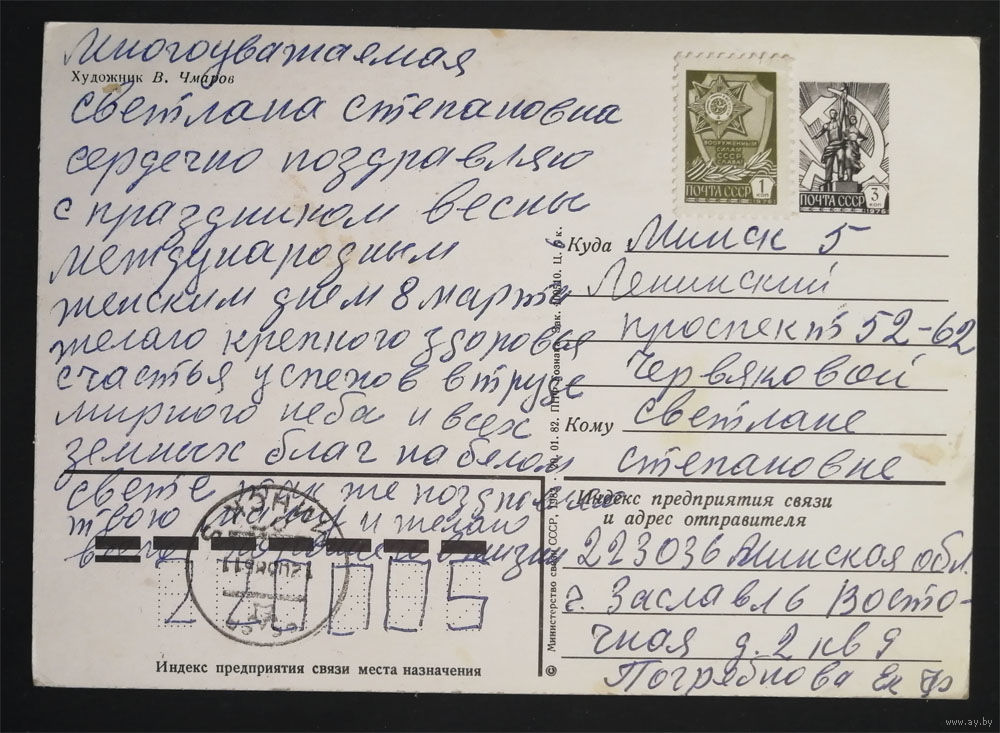 Многоуважаемая
Художник В. Чмаров
светлана степановна
сердечно поздравляю
с праздником весны
международным
женским днем 8 марта
желаю крепкого здоровья
счастья успехов в труде
мирного неба и всех
земных благ на белом
свете так же поздравляю
твою и желаю
всего в жизни
ВООРУЖЕННЫМ
СИЛАМ
СССР
СЛАВА!
ПОЧТА СССР 1 КОП
1976
ПОЧТА СССР 3 КОП
1976
Куда Минск 5
Ленинский
проспект 52-62
Червяковой
Кому светлане
степановне
Индекс предприятия связи
и адрес отправителя
223036 Минская обл.
г. Заславль Восто-
чная д. 2 кв 9
Погрябнова Ек
МИНСК
Индекс предприятия связи места назначения
© Министерство связи СССР, 1982. 20. 01. 82. ППФ Гознака. Зак. Ц. 6 к.
www.ay.by